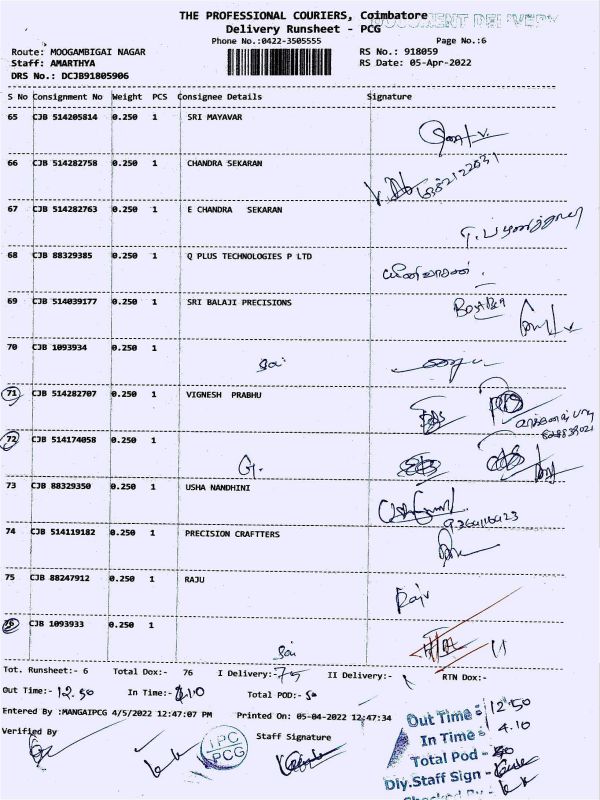 THE PROFESSIONAL COURIERS, Coimbatore
DOCUMENT DELIVERY
Delivery Runsheet - PCG
Phone No.:0422-3505555
Page No.:6
Route: MOOGAMBIGAI NAGAR
RS No.: 918059
Staff: AMARTHYA
RS Date: 05-Apr-2022
DRS No.: DCJB91805906
S No Consignment No Weight PCS Consignee Details Signature
65 CJB 514205814 0.250 1 SRI MAYAVAR
66 CJB 514282758 0.250 1 CHANDRA SEKARAN
67 CJB 514282763 0.250 1 E CHANDRA SEKARAN
68 CJB 88329385 0.250 1 Q PLUS TECHNOLOGIES P LTD
69 CJB 514039177 0.250 1 SRI BALAJI PRECISIONS
70 CJB 1093934 0.250 1
71 CJB 514282707 0.250 1 VIGNESH PRABHU
72 CJB 514174058 0.250 1
G.
73 CJB 88329350 0.250 1 USHA NANDHINI
74 CJB 514119182 0.250 1 PRECISION CRAFTTERS
75 CJB 88247912 0.250 1 RAJU
Raju
76 CJB 1093933 0.250 1
Tot. Runsheet:- 6 Total Dox:- 76 I Delivery:- 75 II Delivery:- 1 RTN Dox:-
Out Time:- 12.50 In Time:- 4.10 Total POD:- 50
Entered By :MANGAIPCG 4/5/2022 12:47:07 PM Printed On: 05-04-2022 12:47:34
Verified By
Staff Signature
TPC
PCG
Out Time : 12.50
In Time : 4.10
Total Pod - 50
Dly.Staff Sign -
Checked By -